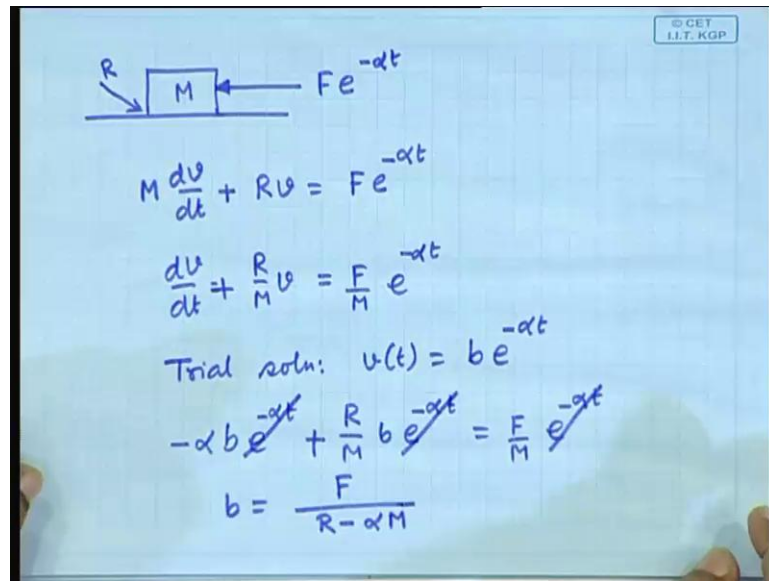 © CET
I.I.T. KGP
R
M
Fe^{-αt}
M dv/dt + Rv = Fe^{-αt}
dv/dt + R/M v = F/M e^{-αt}
Trial soln: v(t) = be^{-αt}
-αbe^{-αt} + R/M be^{-αt} = F/M e^{-αt}
b = F/(R-αM)